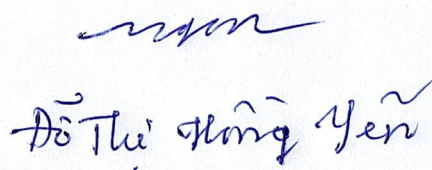 Đỗ Thị Hồng Yến